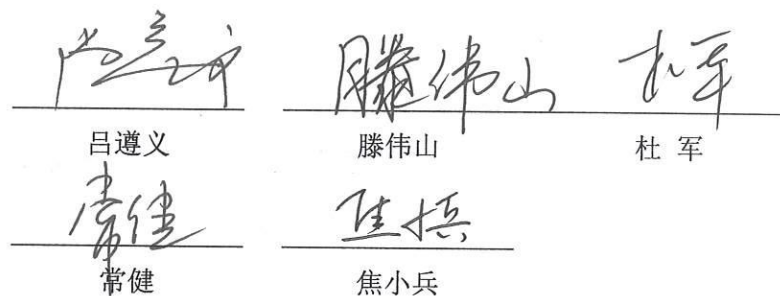 滕伟山 杜军
吕遵义 滕伟山 杜 军
常健 焦小兵
常健 焦小兵